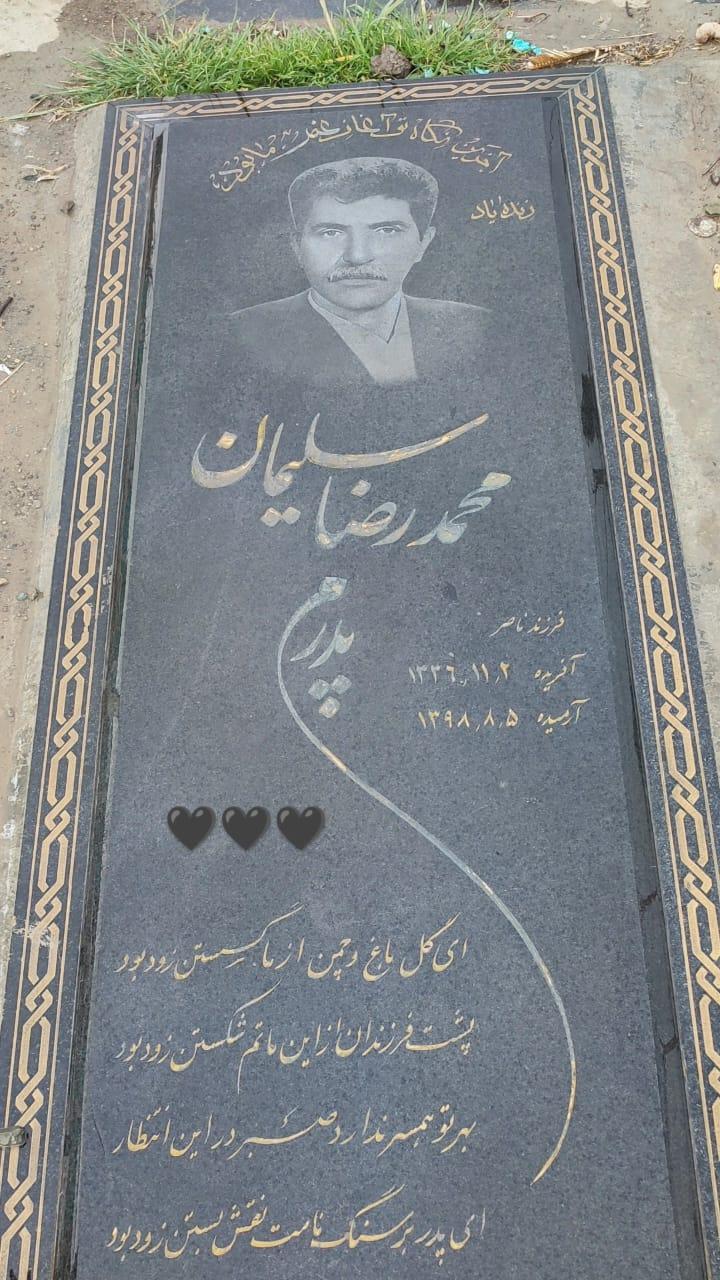 آخرین نگاه تو آغاز غم ما بود
زنده یاد
سلیمان
محمدرضا
پدرم
فرزند ناصر
آفریده ۱۳۳۶,۱۱,۲
آرمیده ۱۳۹۸,۸,۵
ای گل باغ و چمن از ما گسستن زود بود
پشت فرزندان از این ماتم شکستن زود بود
بهر تو همسر ندارد صبر در این انتظار
ای پدر بر سنگ نامت نقش بستن زود بود